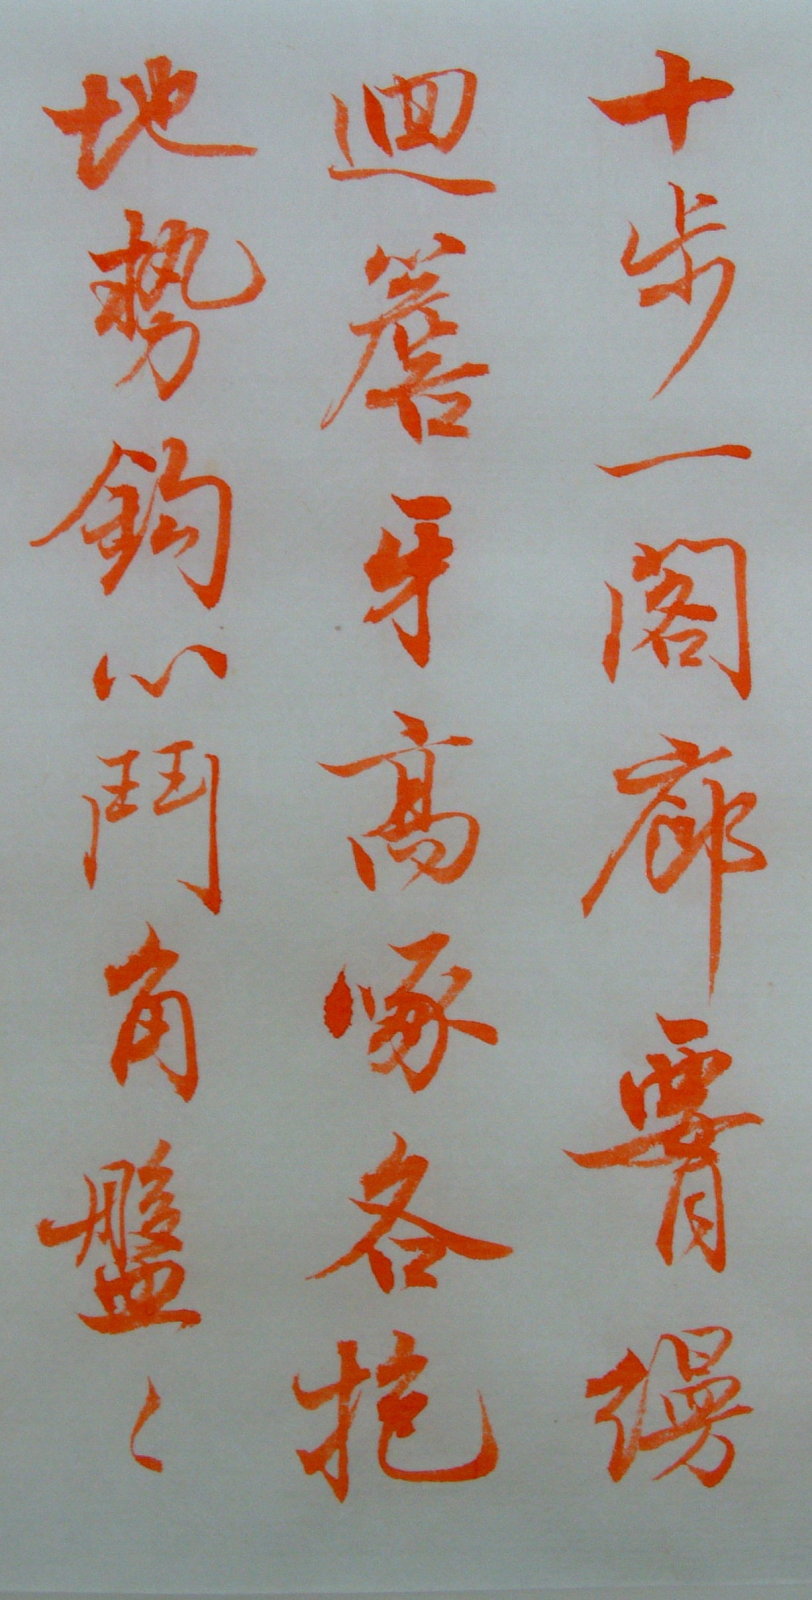 十步一閣廊腰縵
迴簷牙高啄各抱
地勢鈎心鬥角盤〻